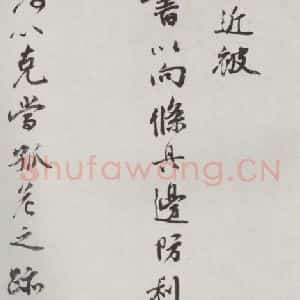 近被
書以向條具邊防利
何以克當孤危之跡
Shufawang.CN